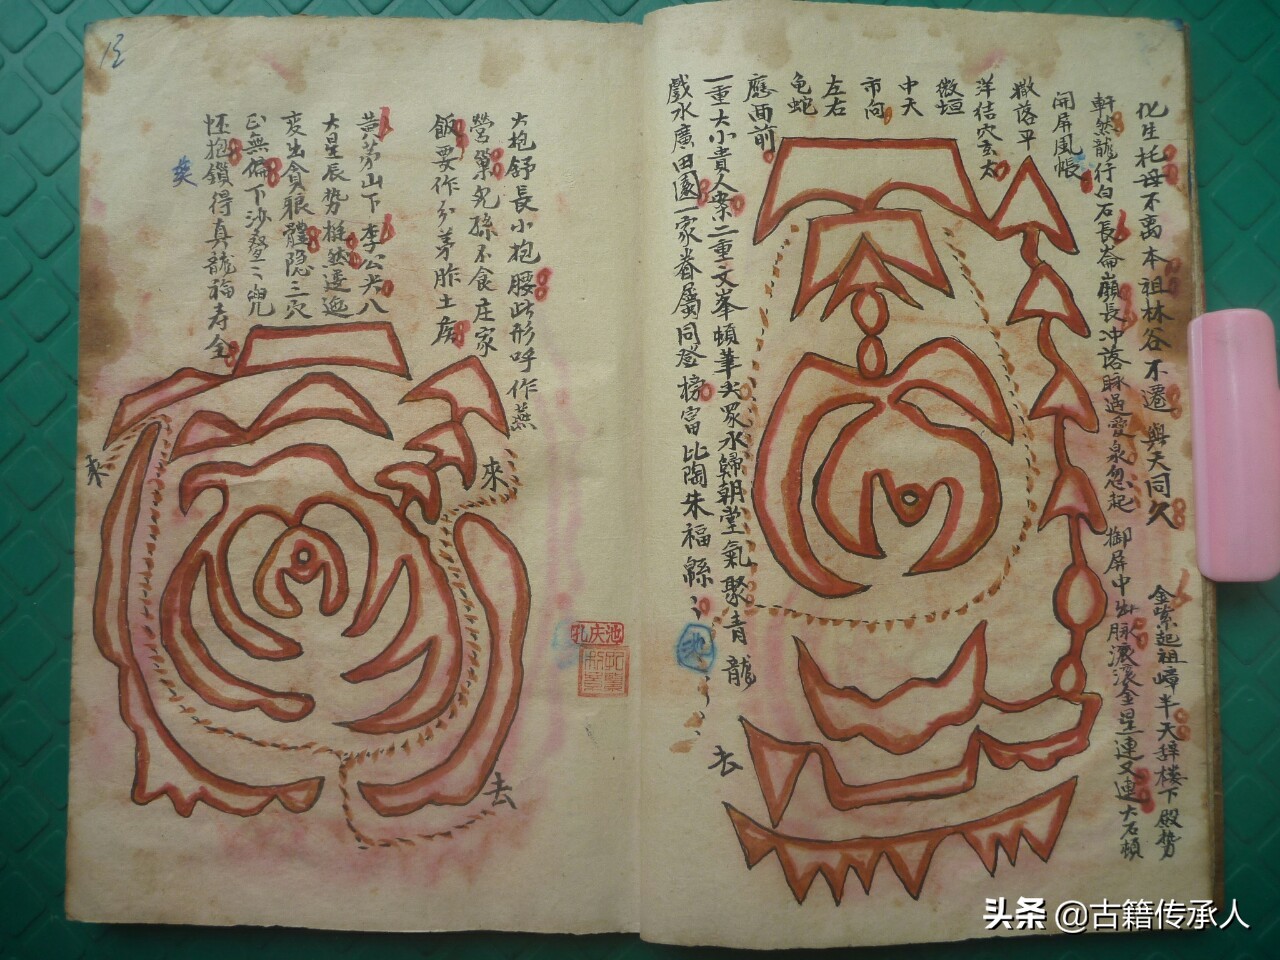 化生托母不离本祖林谷不遷與天同久
金紫起祖嶂半天辞楼下殿势
軒然龍行白石長崙崩長冲落脉過愛泉忽起
御屏中出脉滚滚金星連又連大石頓
開屏風帳
撒落平
洋结穴玄太
微垣
中天
市向
左右
龟蛇
應面前
一重大小貴人案二重文峯頓筆尖眾水歸朝堂氣聚青龍
戲水廣田園一家眷屬同登榜富比陶朱福緜〻
去
大抱舒長小抱腰此形呼作燕
營巢兒孫不食庄家
飯要作分茅胙土侯
黄茅山下李公米八
大星辰势挺然逶迤
变出貪狼體隐三穴
正無偏下沙叠〻兜
怀抱鎖得真龍福寿全
來
來
去
池庆
头条 @古籍传承人